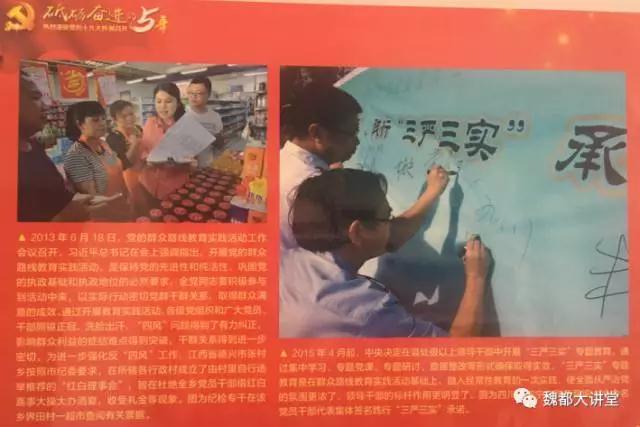 砥砺奋进的5年
热烈迎接党的十九大胜利召开
新“三严三实”
承
做
▲ 2013年6月18日，党的群众路线教育实践活动工作
会议召开，习近平总书记在会上强调指出，开展党的群众
路线教育实践活动，是保持党的先进性和纯洁性、巩固党
的执政基础和执政地位的必然要求，全党同志要积极参与
到活动中来，以实际行动密切党群干群关系，取得群众满
意的成效。通过开展教育实践活动，各级党组织和广大党员、
干部照镜正冠、洗脸出汗，“四风”问题得到了有力纠正，
影响群众利益的症结难点得到突破，干群关系得到进一步
密切。为进一步强化反“四风”工作，江西省德兴市张村
乡按照市纪委要求，在所辖各行政村成立了由村里自行选
举推荐的“红白理事会”，旨在杜绝全乡党员干部借红白
喜事大操大办酒宴，收受礼金等现象。图为纪检专干在该
乡界田村一超市查阅有关票据。
▲ 2015年4月起，中央决定在县处级以上领导干部中开展“三严三实”专题教育，通
过集中学习、专题党课、专题研讨、直接整改等形式确保取得实效。“三严三实”专题
教育是在群众路线教育实践活动基础上，融入经常性教育的一次实践，使全面从严治党
的氛围更浓了，领导干部的标杆作用更明显了。图为四川
党员干部代表集体签名践行“三严三实”承诺。
魏都大讲堂